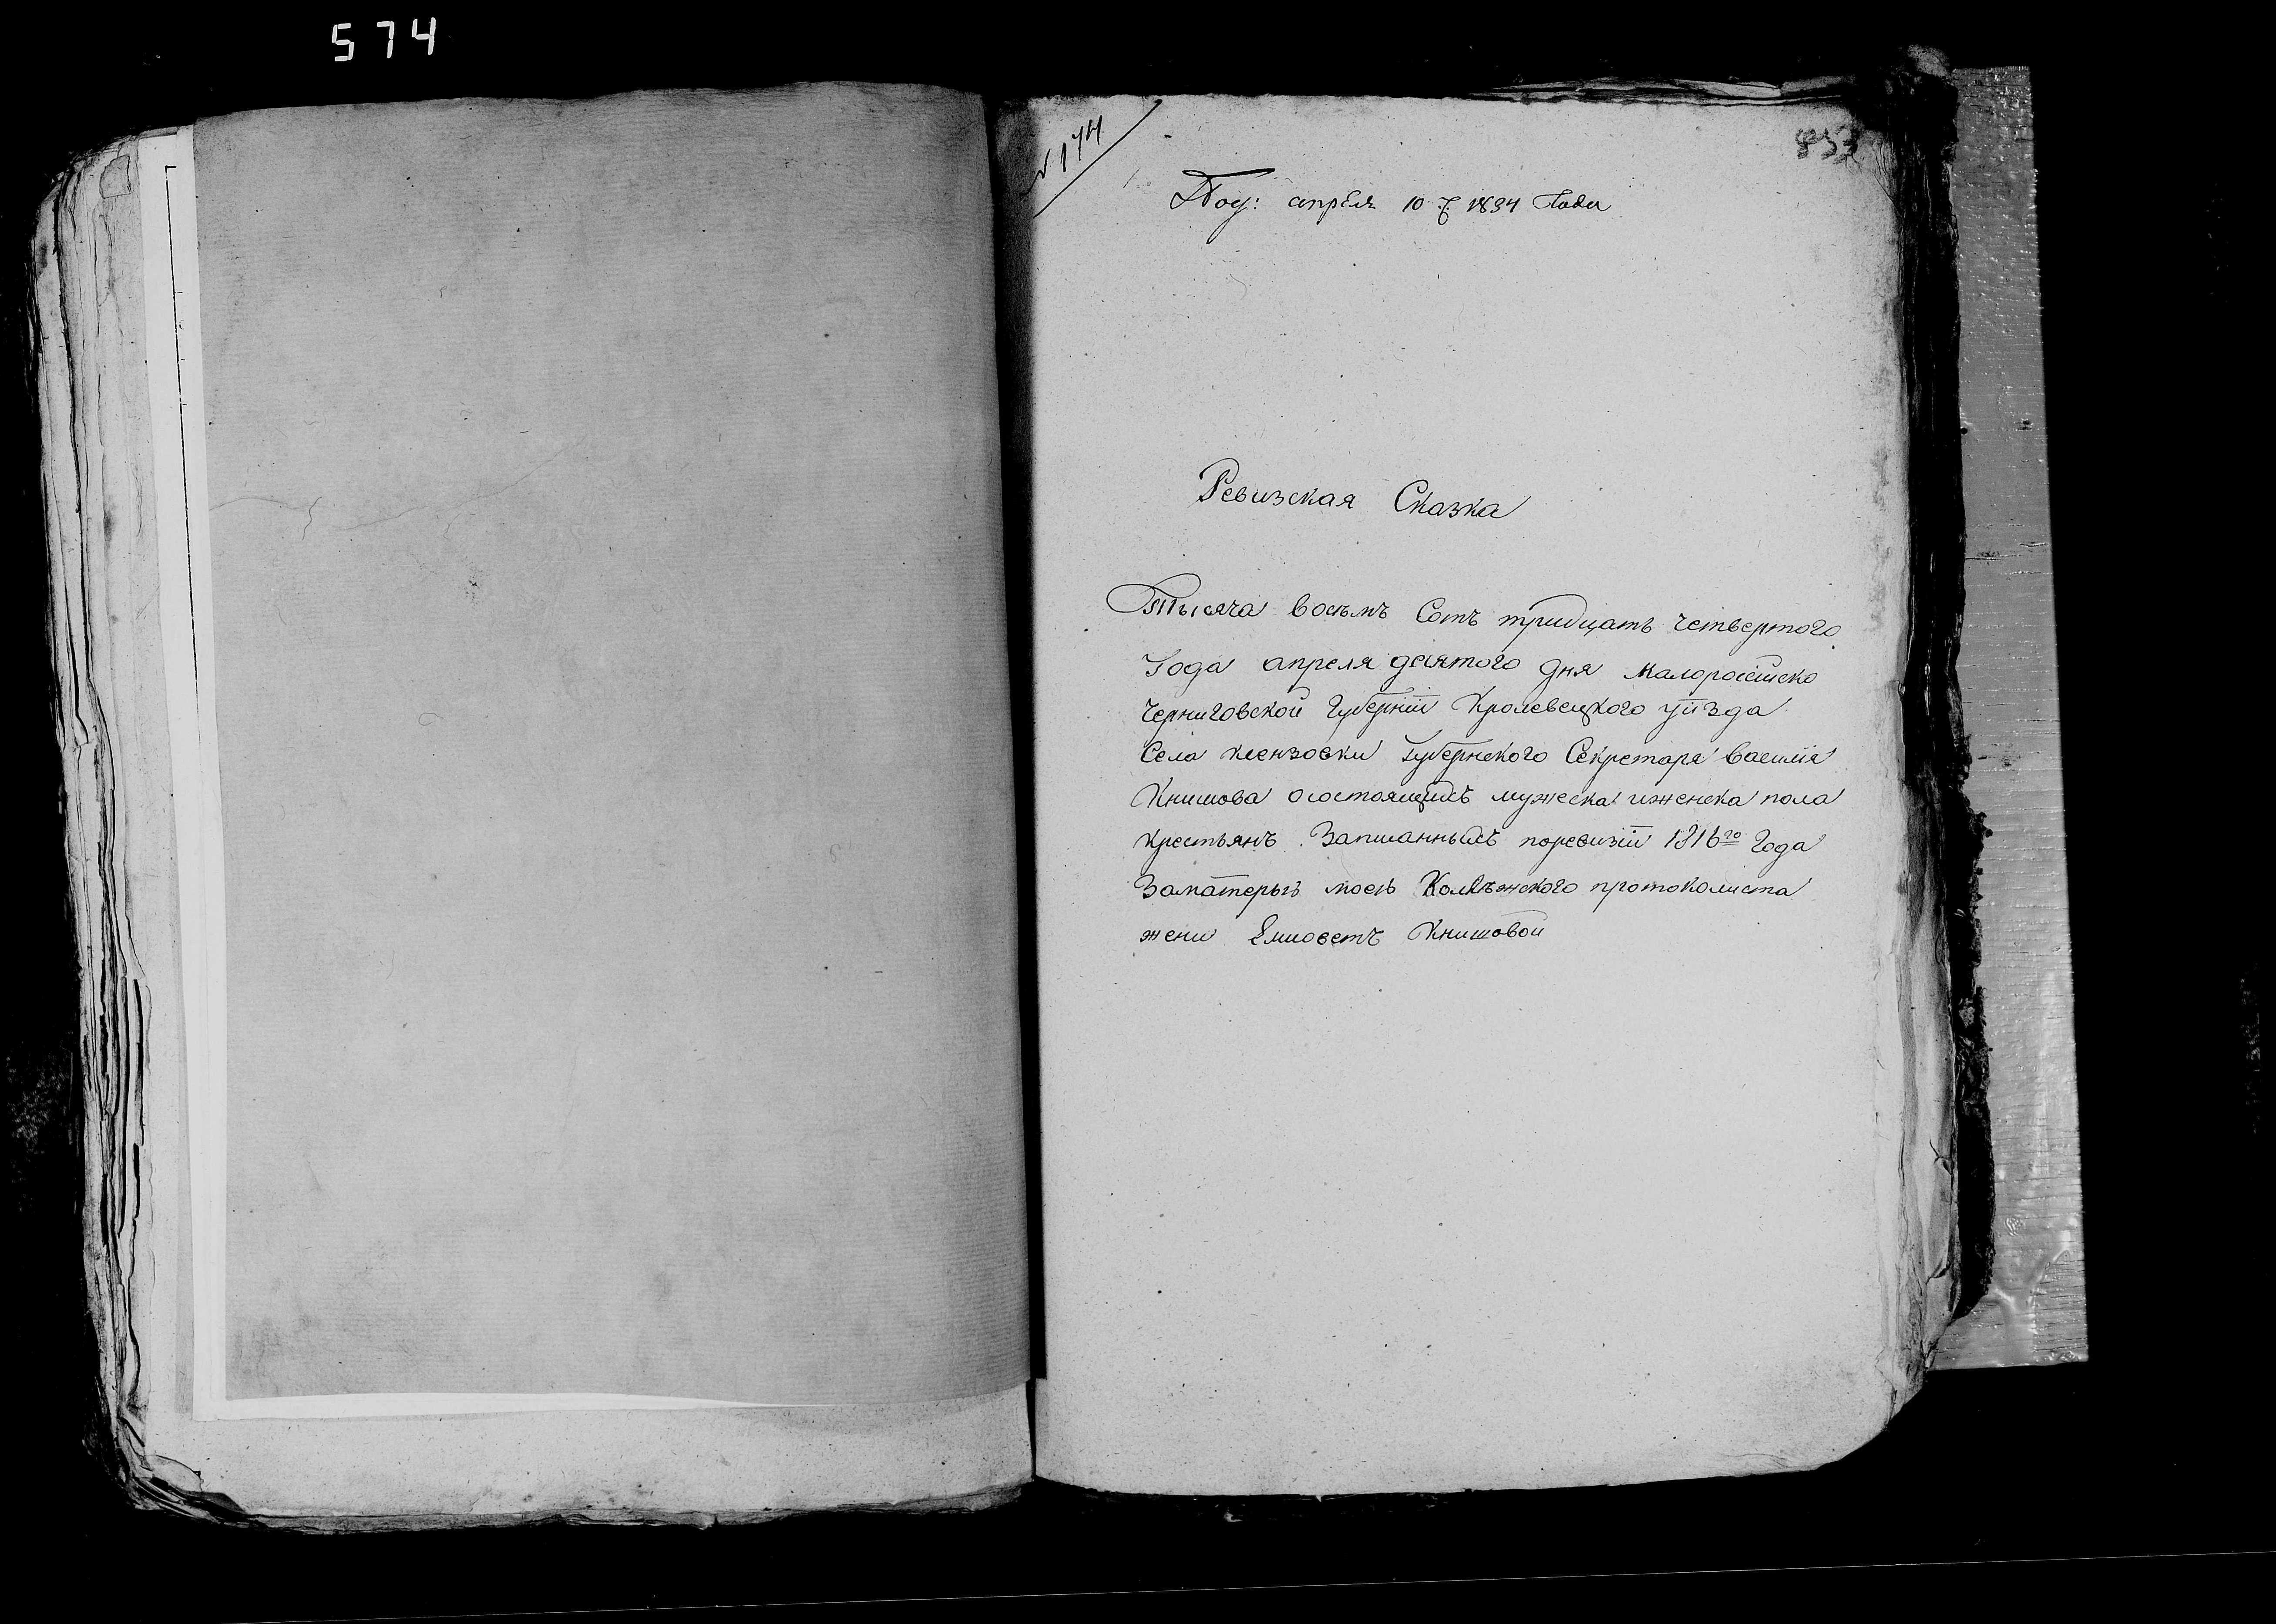 574
№ 174
853
Под: апреля 10 д. 1834 Года
Ревизская Сказка
Тысяча восъмъ Сотъ тридцать четвертого
Года апреля десятого дня малоросійско
черниговской Губерніи Кролевецкого уѣзда
Села ксензовки Губернского Секретаря василія
Книшова осостоящихъ мужеска иженска пола
крестьянъ. Записанныхъ поревизіи 1816го Года
Заматерью моею протоколиста
жени Елисветъ Книшовой